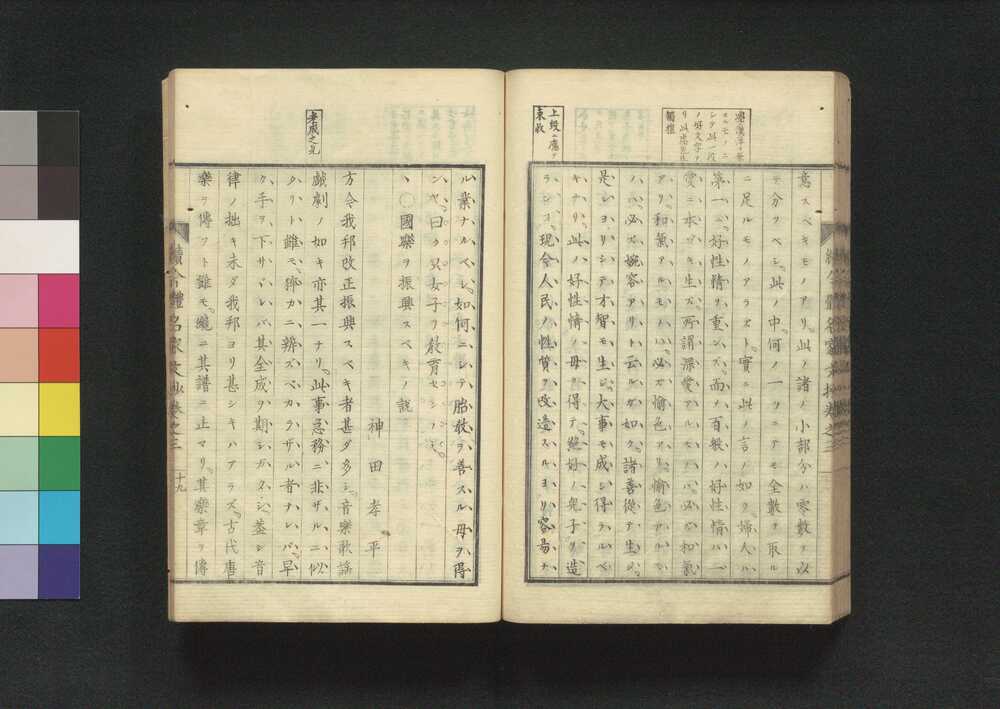 意スベキモノアリ此ノ諸ノ小部分ハ零數ヲ以
テ分ツベシ此ノ中何ノ一ツニテモ全數ヲ取ル
ニ足ルモノアラズト實ニ此ノ言ノ如ク婦人ハ
第一ニ好性情ヲ重ンズ而ノ百般ハ好性情ハ一
愛ニ本ヅキ生ズ所謂深愛アルモノハ必ズ和氣
アリ和氣アルモノハ必ズ愉色アリ愉色アルモ
ノハ必ズ婉容アリト云ルガ如ク諸善徒ヲ生ジ
是レヨリシテ才智モ生ジ大事モ成シ得ラルベ
キナリ此ノ好性情ノ母ヲ得テ絶好ノ兒子ヲ造
ランコ現今人民ノ性質ヲ改造スルヨリ容易ナ
上段ニ應ヲ
束收
續今體名家文抄卷之三
ル業ナルベシ如何ニシテ胎敎ヲ善スル母ヲ得
ンヤ曰ク只女子ヲ敎育センノミ
○國樂ヲ振興スベキノ説
神田孝平
方今我邦改正振興スベキ者甚ダ多シ音樂歌謠
戯劇ノ如キ亦其一ナリ此事急務ニ非ザルニ似
タリト雖モ猝カニ辨ズベカラザル者ナレバ早
ク手ヲ下サヾレバ其全成ヲ期シガタシ蓋シ音
律ノ拙キ未ダ我邦ヨリ甚シキハアラズ古代唐
樂ヲ傳フト雖モ纔ニ其譜ニ止マリ其樂章ヲ傳
續今體名家文抄卷之三
十九